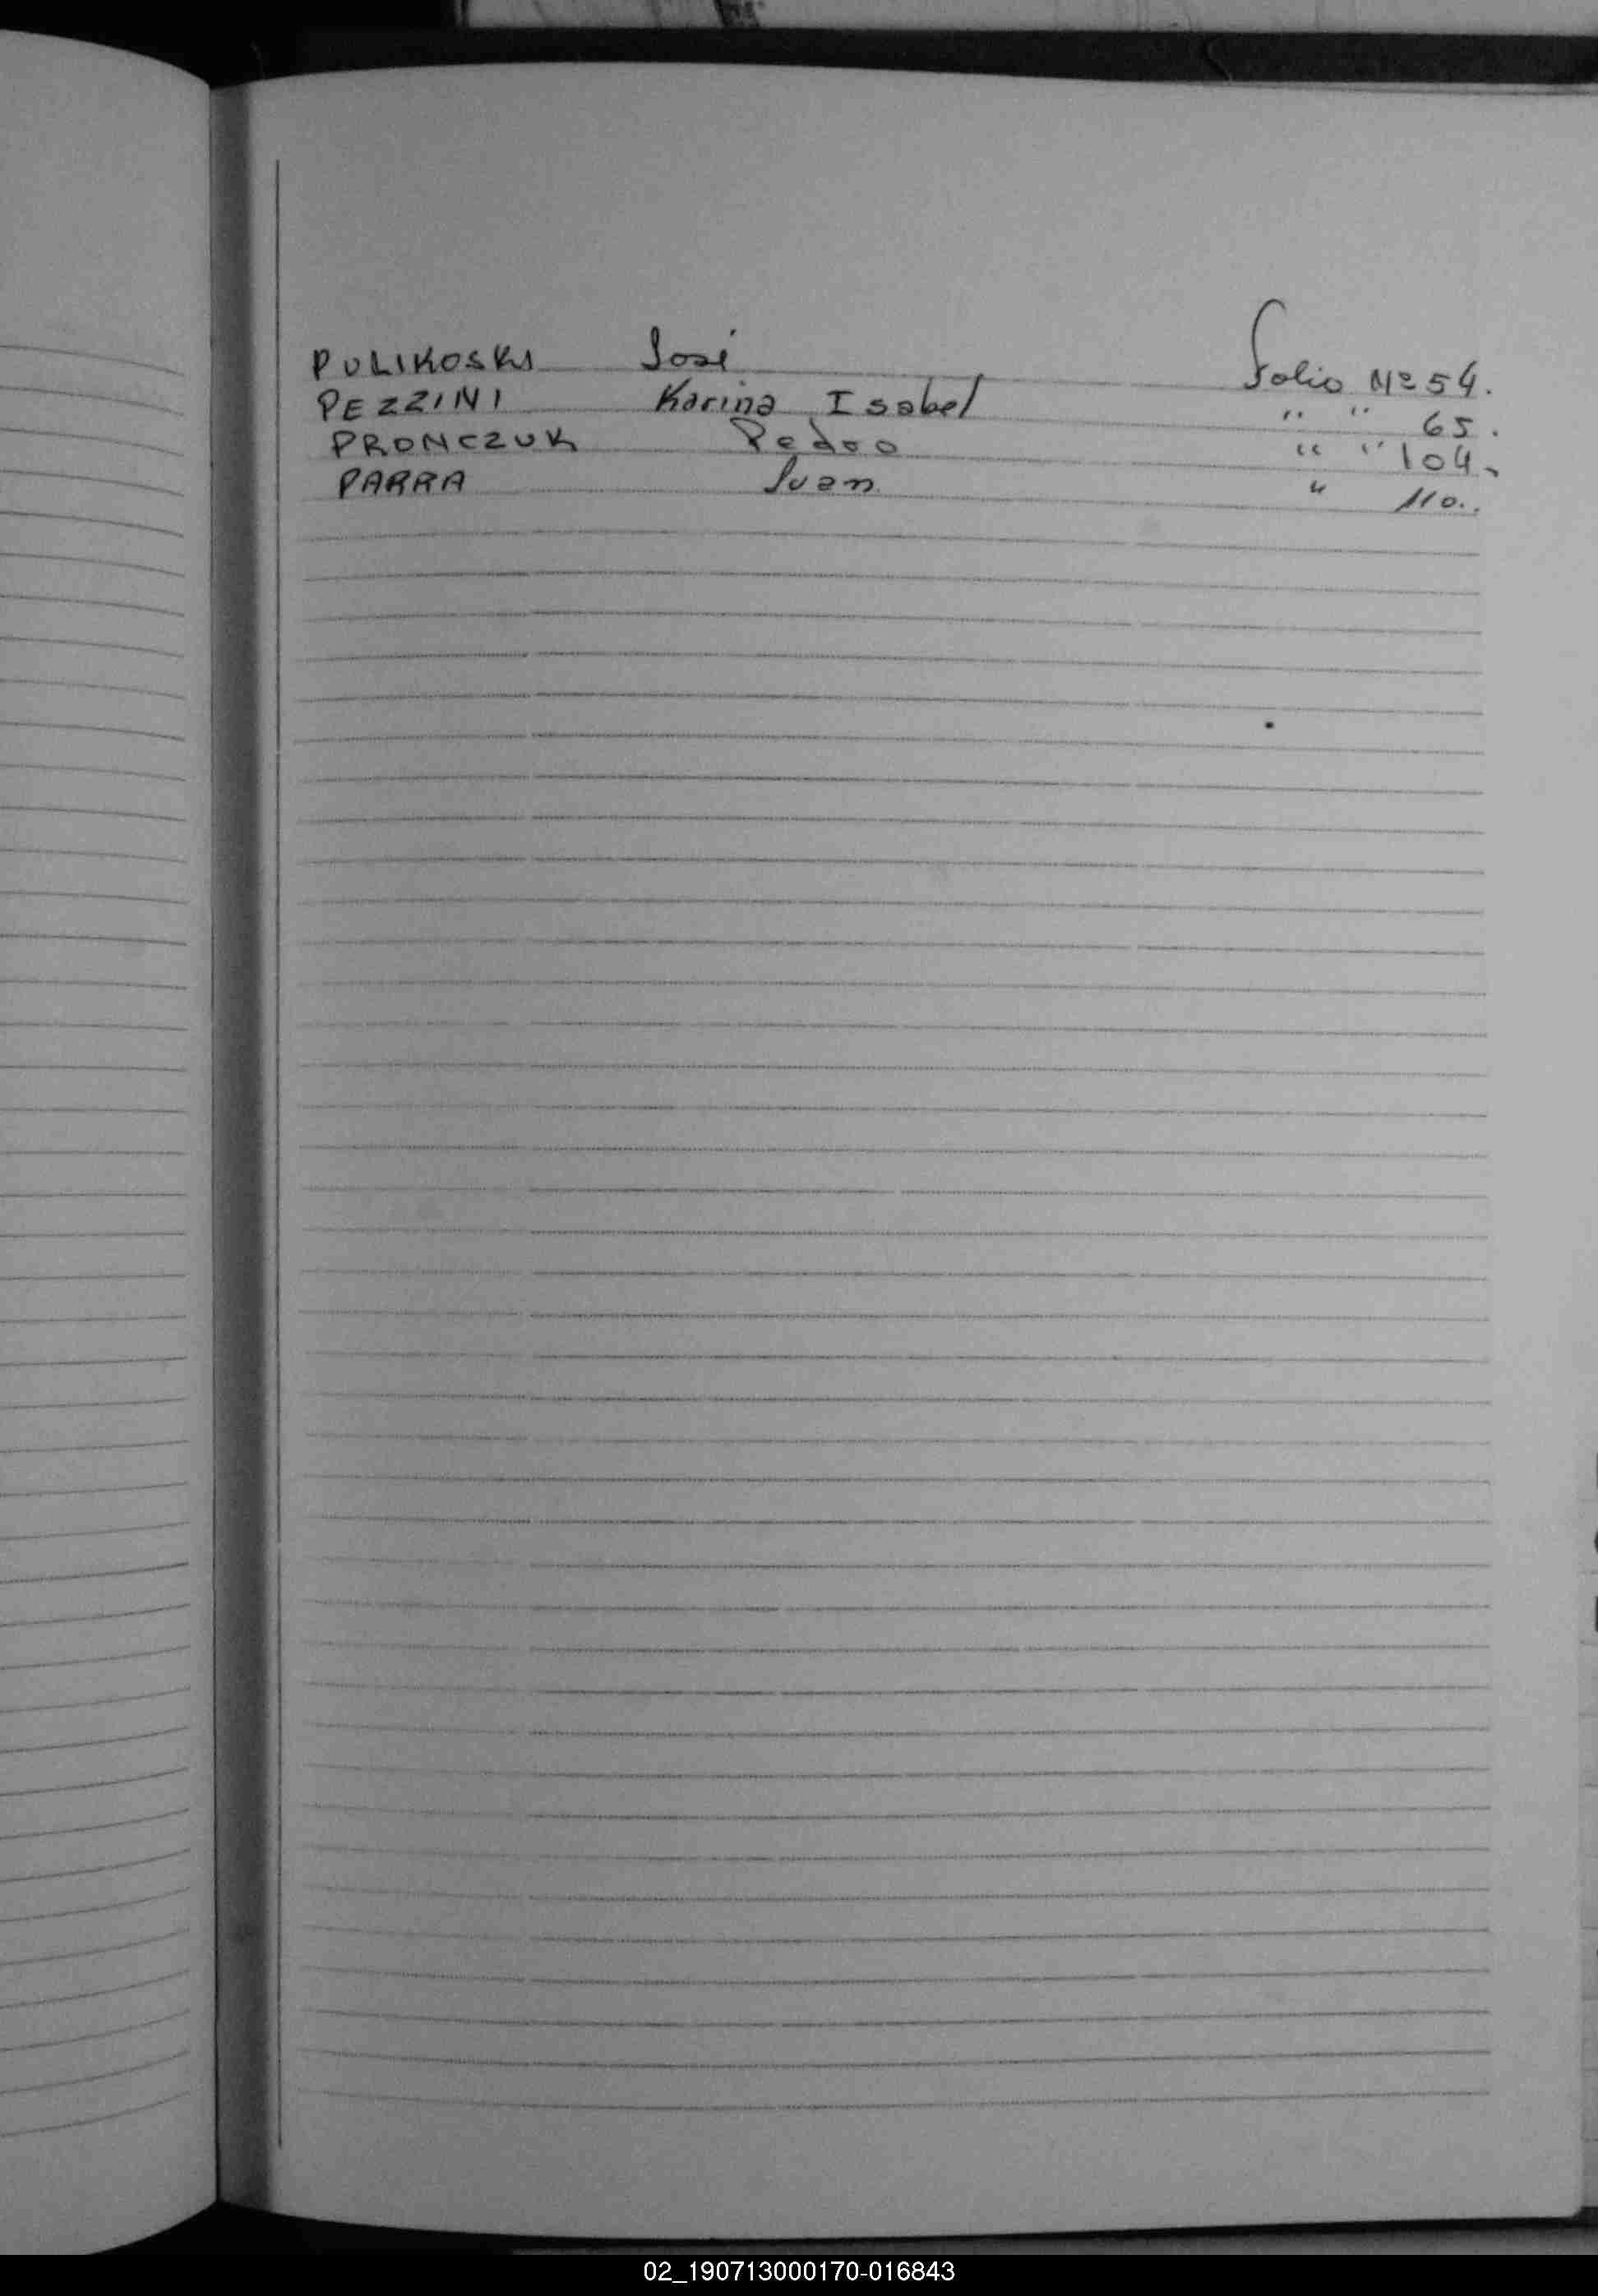 PULIKOSKI José Folio Nº 54.
PEZZINI Karina Isabel " " 65.
PRONCZUK Pedro " " 104.
PARRA Juan " 110..
02_190713000170-016843